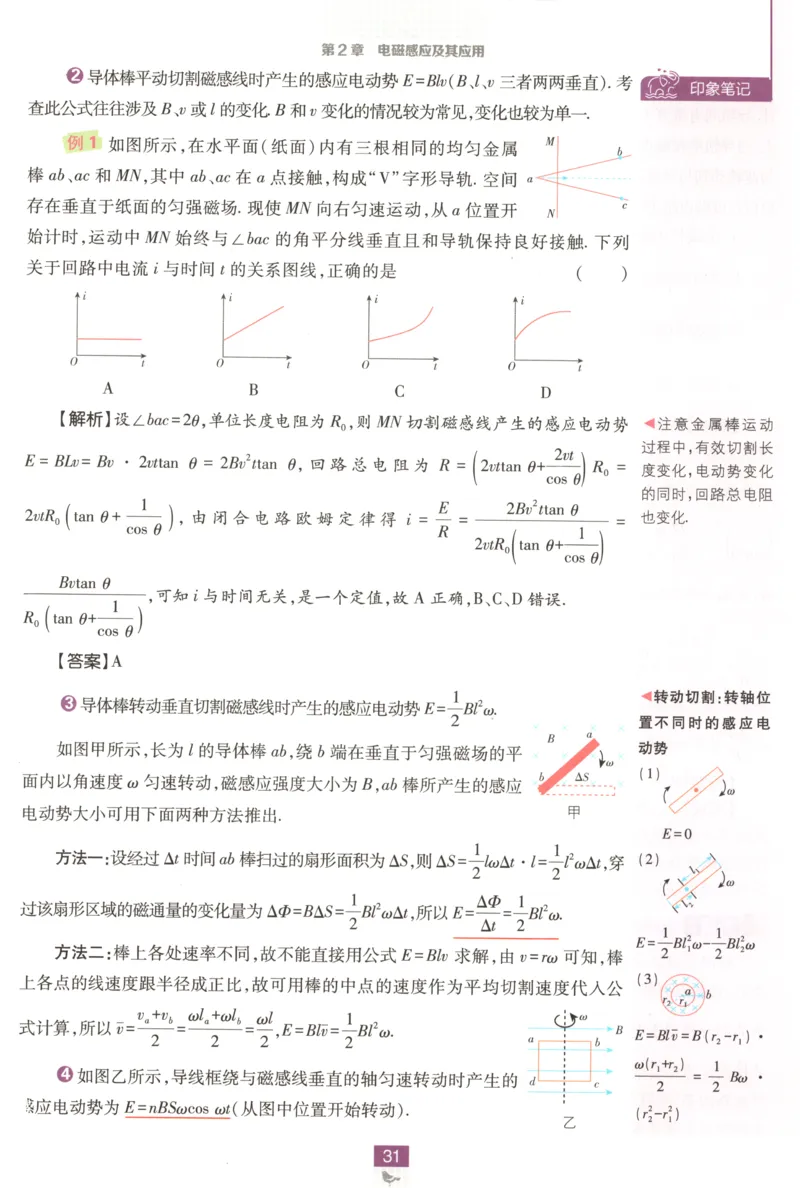 第2章 电磁感应及其应用
❷导体棒平动切割磁感线时产生的感应电动势 E=Blv(B、l、v 三者两两垂直). 考
查此公式往往涉及 B、v 或 l 的变化. B 和 v 变化的情况较为常见,变化也较为单一.
例1 如图所示,在水平面(纸面)内有三根相同的均匀金属
棒 ab、ac 和 MN,其中 ab、ac 在 a 点接触,构成“V”字形导轨. 空间
存在垂直于纸面的匀强磁场. 现使 MN 向右匀速运动,从 a 位置开
始计时,运动中 MN 始终与∠bac 的角平分线垂直且和导轨保持良好接触. 下列
关于回路中电流 i 与时间 t 的关系图线,正确的是 ( )
M
b
a
c
N
i i i i
O t O t O t O t
A B C D
【解析】设∠bac=2θ,单位长度电阻为 R₀,则 MN 切割磁感线产生的感应电动势
E=BLv=Bv·2vttan θ=2Bv²ttan θ,回路总电阻为 R=(2vttan θ+2vt/cos θ)R₀=
2vtR₀(tan θ+1/cos θ),由闭合电路欧姆定律得 i=E/R=2Bv²ttan θ/2vtR₀(tan θ+1/cos θ)=
Bvtan θ/R₀(tan θ+1/cos θ),可知 i 与时间无关,是一个定值,故 A 正确,B、C、D 错误.
【答案】A
❸导体棒转动垂直切割磁感线时产生的感应电动势 E=1/2Bl²ω.
如图甲所示,长为 l 的导体棒 ab,绕 b 端在垂直于匀强磁场的平
面内以角速度 ω 匀速转动,磁感应强度大小为 B,ab 棒所产生的感应
电动势大小可用下面两种方法推出.
B a
ω
b ΔS
甲
方法一:设经过 Δt 时间 ab 棒扫过的扇形面积为 ΔS,则 ΔS=1/2lωΔt·l=1/2l²ωΔt,穿
过该扇形区域的磁通量的变化量为 ΔΦ=BΔS=1/2Bl²ωΔt,所以 E=ΔΦ/Δt=1/2Bl²ω.
方法二:棒上各处速率不同,故不能直接用公式 E=Blv 求解,由 v=rω 可知,棒
上各点的线速度跟半径成正比,故可用棒的中点的速度作为平均切割速度代入公
式计算,所以 v̄=(vₐ+v_b)/2=(ωlₐ+ωl_b)/2=ωl/2,E=Blv̄=1/2Bl²ω.
❹如图乙所示,导线框绕与磁感线垂直的轴匀速转动时产生的
感应电动势为 E=nBSωcos ωt(从图中位置开始转动).
ω
B
a b
d c
乙
印象笔记
◀注意金属棒运动
过程中,有效切割长
度变化,电动势变化
的同时,回路总电阻
也变化.
◀转动切割:转轴位
置不同时的感应电
动势
(1)
ω
E=0
(2)
l₁
l₂
ω
E=1/2Bl₁²ω-1/2Bl₂²ω
(3)
a b
r₂ r₁
E=Blv̄=B(r₂-r₁)·
ω(r₁+r₂)/2=1/2Bω·
(r₂²-r₁²)
31